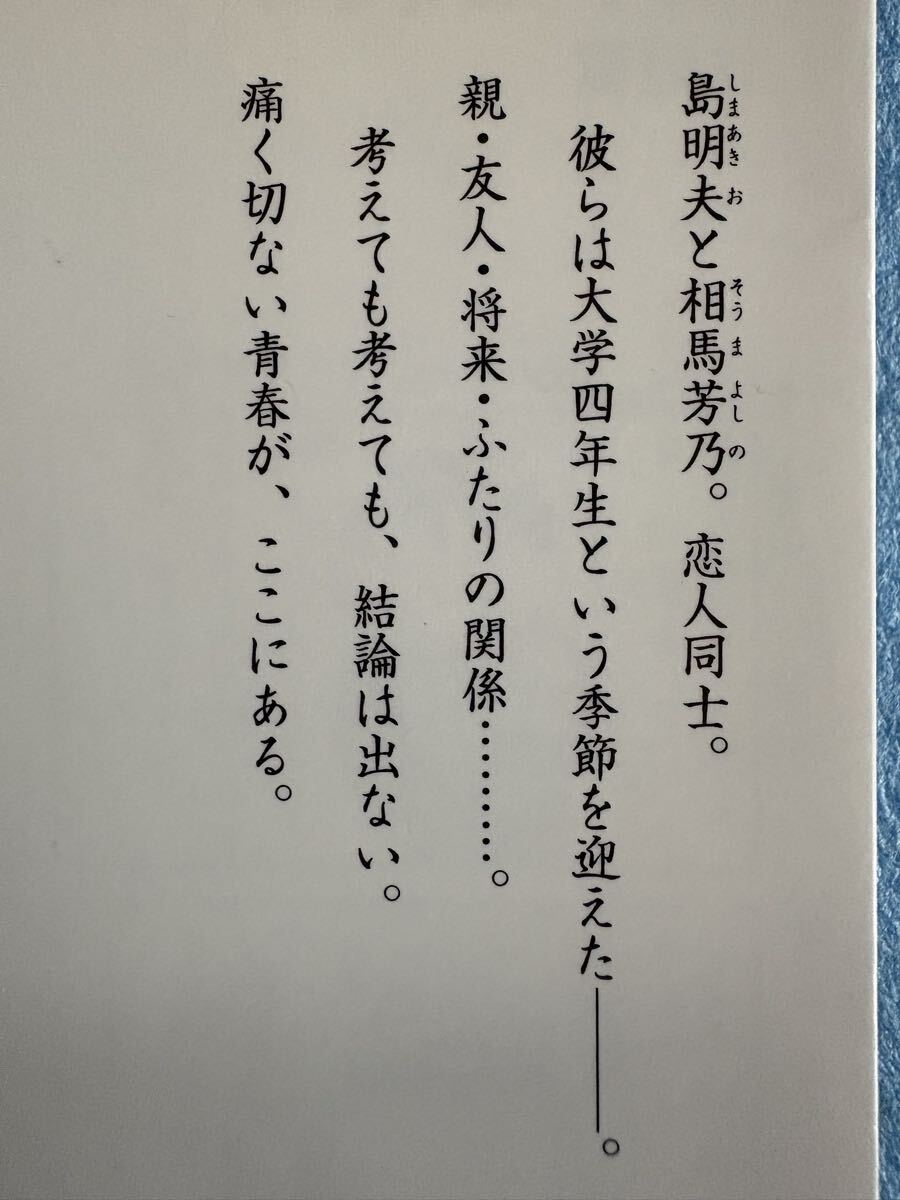 島明夫と相馬芳乃。恋人同士。
彼らは大学四年生という季節を迎えた───。
親・友人・将来・ふたりの関係………。
考えても考えても、結論は出ない。
痛く切ない青春が、ここにある。